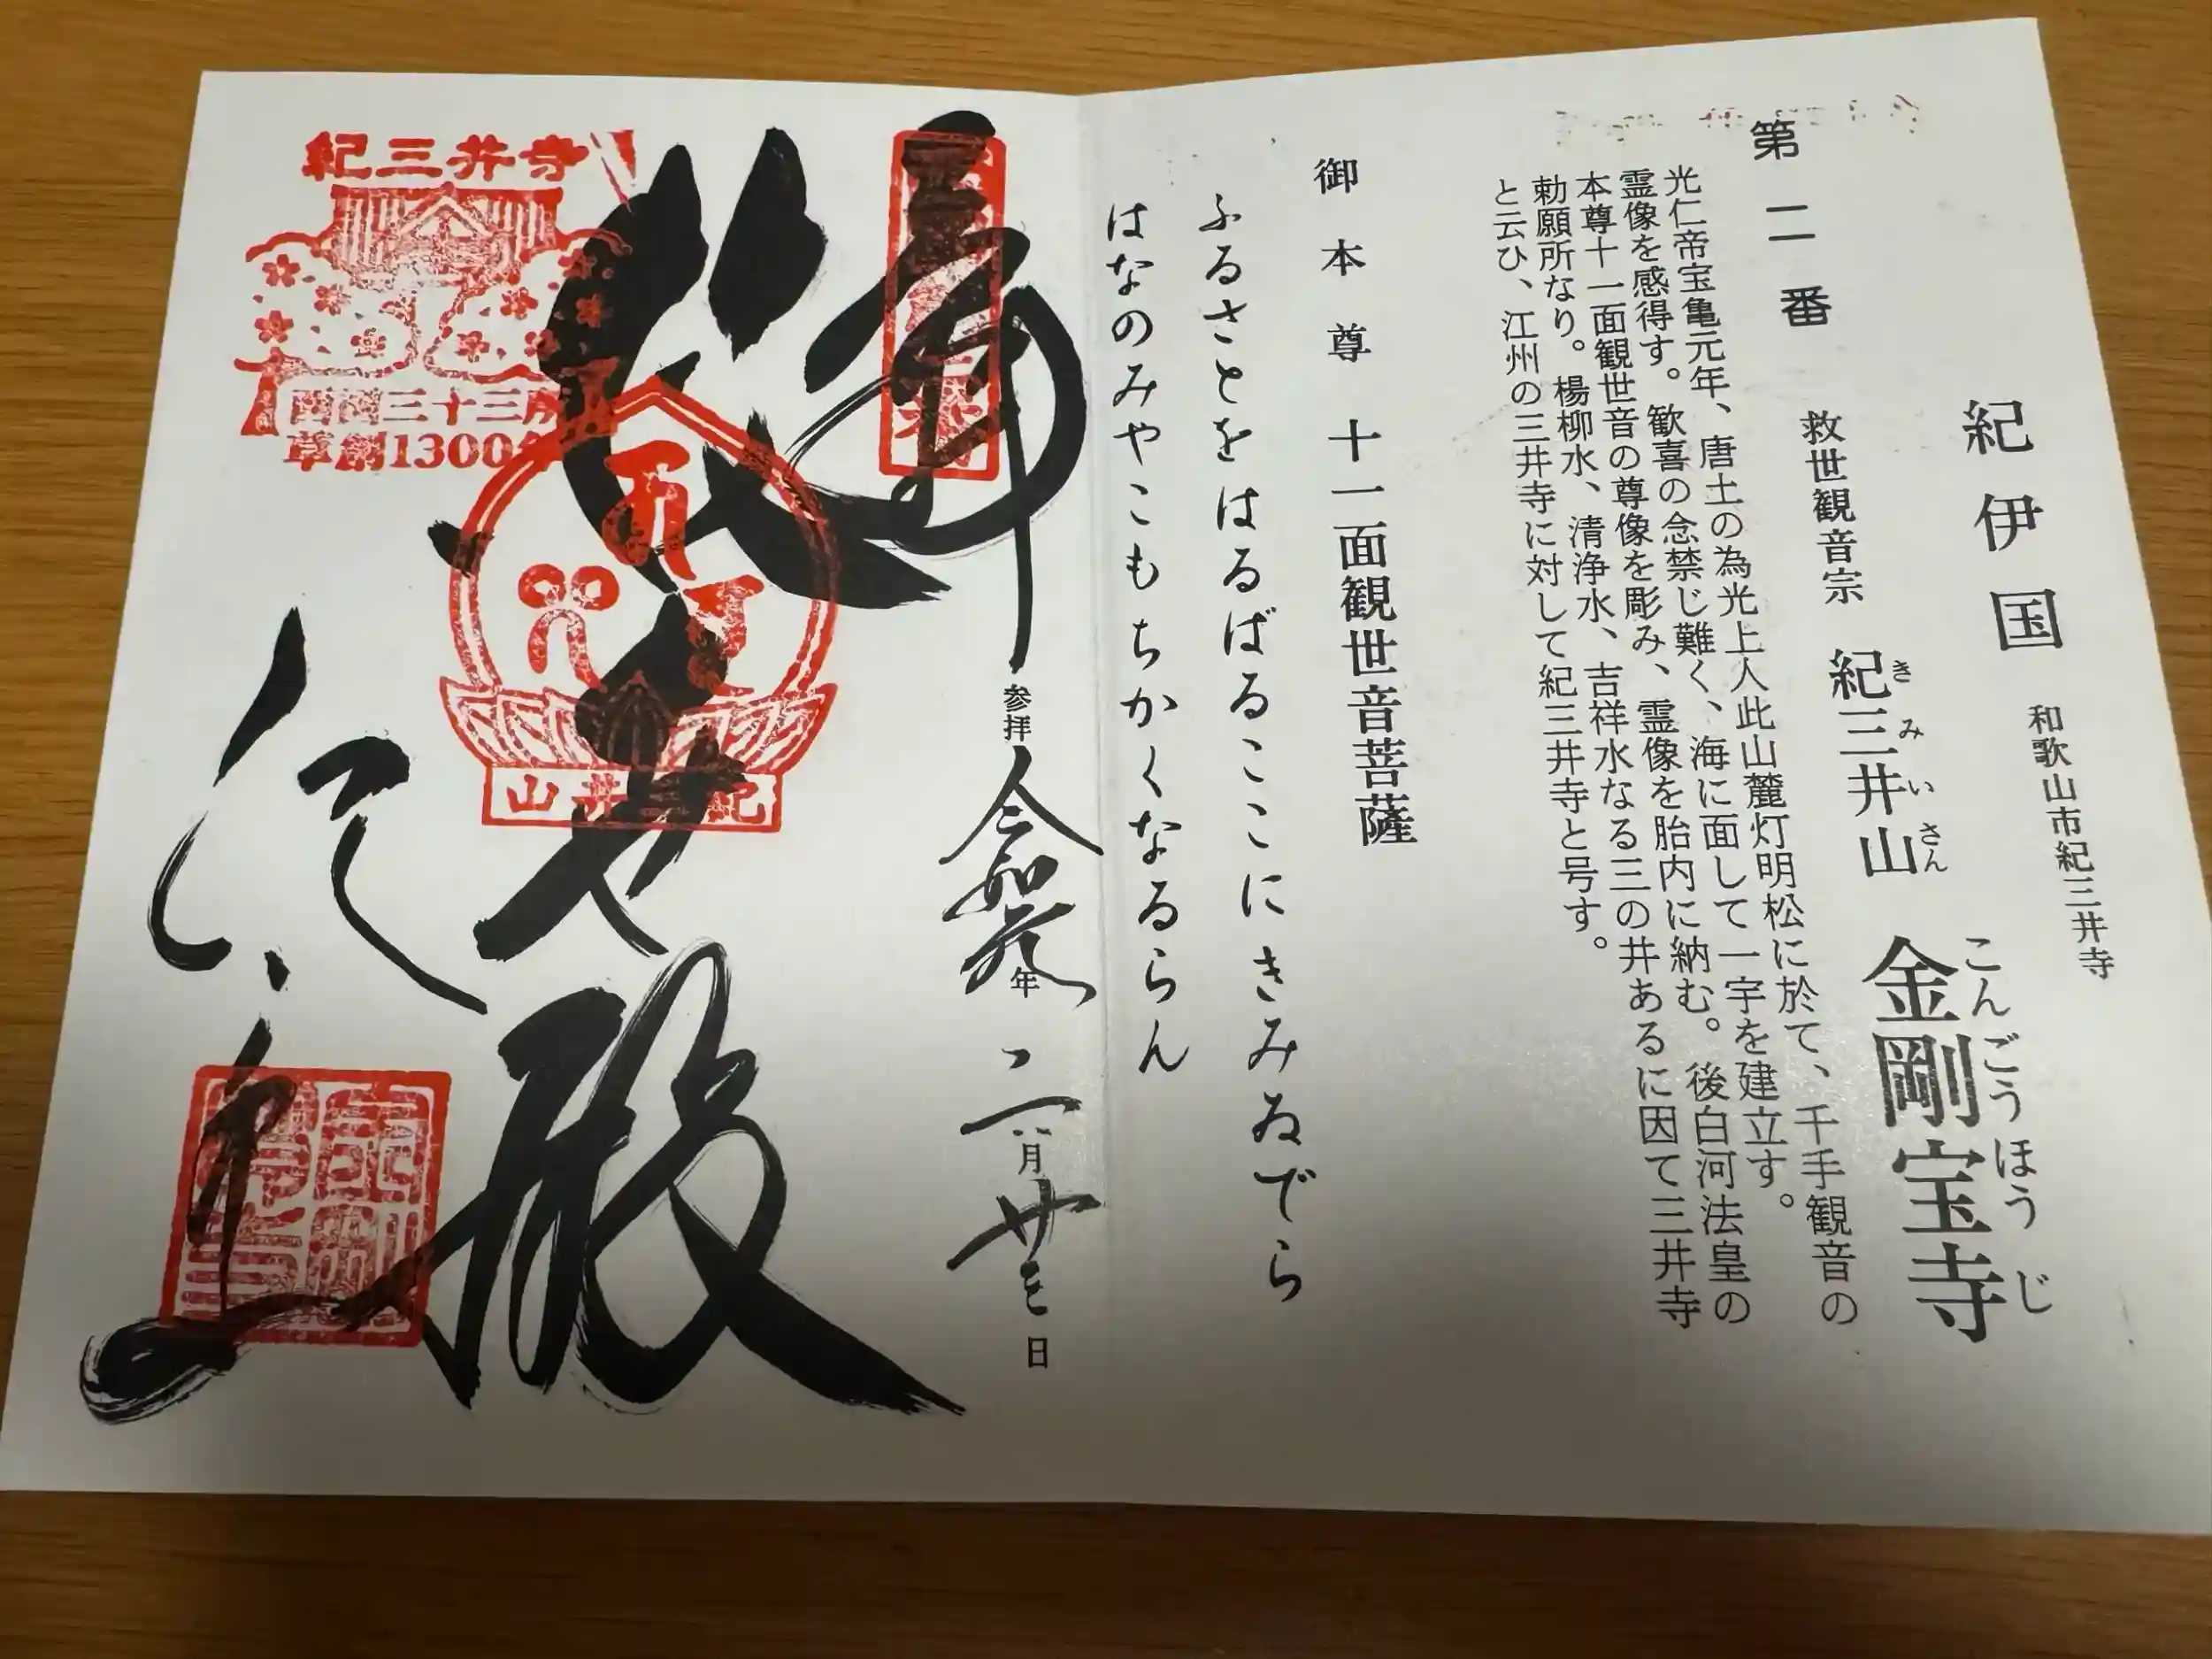 紀伊国
和歌山市紀三井寺
第二番
救世観音宗 紀三井山 金剛宝寺
きみいさん こんごうほうじ
光仁帝宝亀元年、唐土の為光上人此山麓灯明松に於て、千手観音の
霊像を感得す。歓喜の念禁じ難く、海に面して一宇を建立す。
本尊十一面観世音の尊像を彫み、霊像を胎内に納む。後白河法皇の
勅願所なり。楊柳水、清浄水、吉祥水なる三の井あるに因て三井寺
と云ひ、江州の三井寺に対して紀三井寺と号す。
御本尊 十一面観世音菩薩
ふるさとをはるばるここにきみゐでら
はなのみやこもちかくなるらん
奉
参拝
令和元年
二月廿三日
救世殿
紀三井寺
西国三十三所
草創1300年
紀三井山